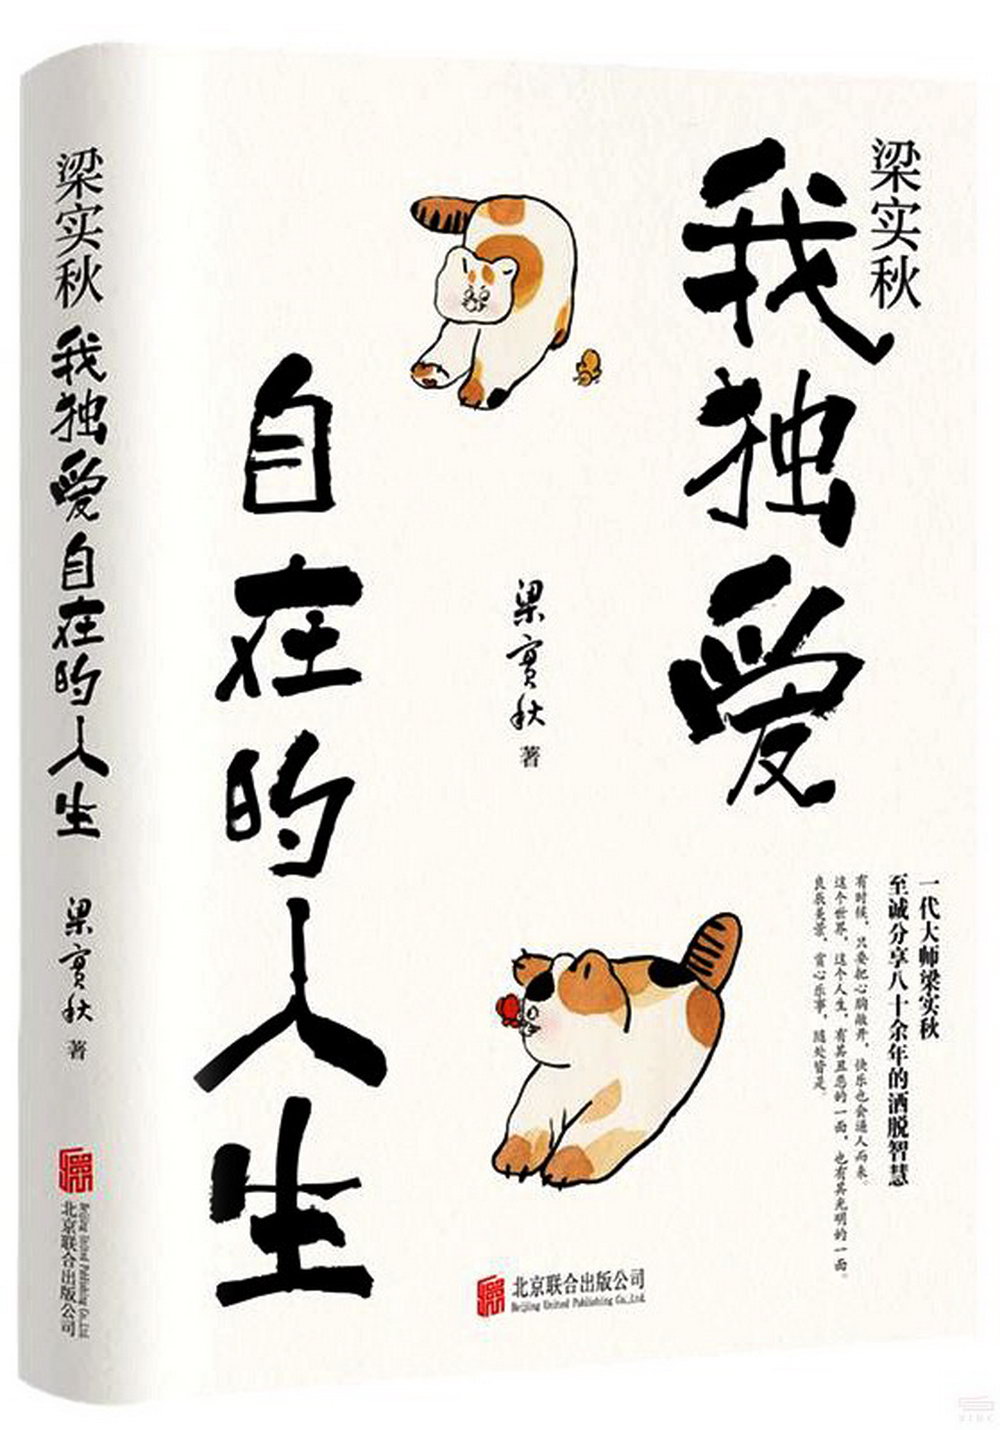 梁实秋
我独爱自在的人生
梁實秋 著
北京联合出版公司
Beijing United Publishing Co.,Ltd.
梁实秋
我独爱
自在的人生
梁實秋 著
一代大师梁实秋
至诚分享八十余年的洒脱智慧
有时候，只要把心胸敞开，快乐也会逼人而来。
这个世界，这个人生，有其丑恶的一面，也有其光明的一面。
良辰美景，赏心乐事，随处皆是。
北京联合出版公司
Beijing United Publishing Co.,Ltd.